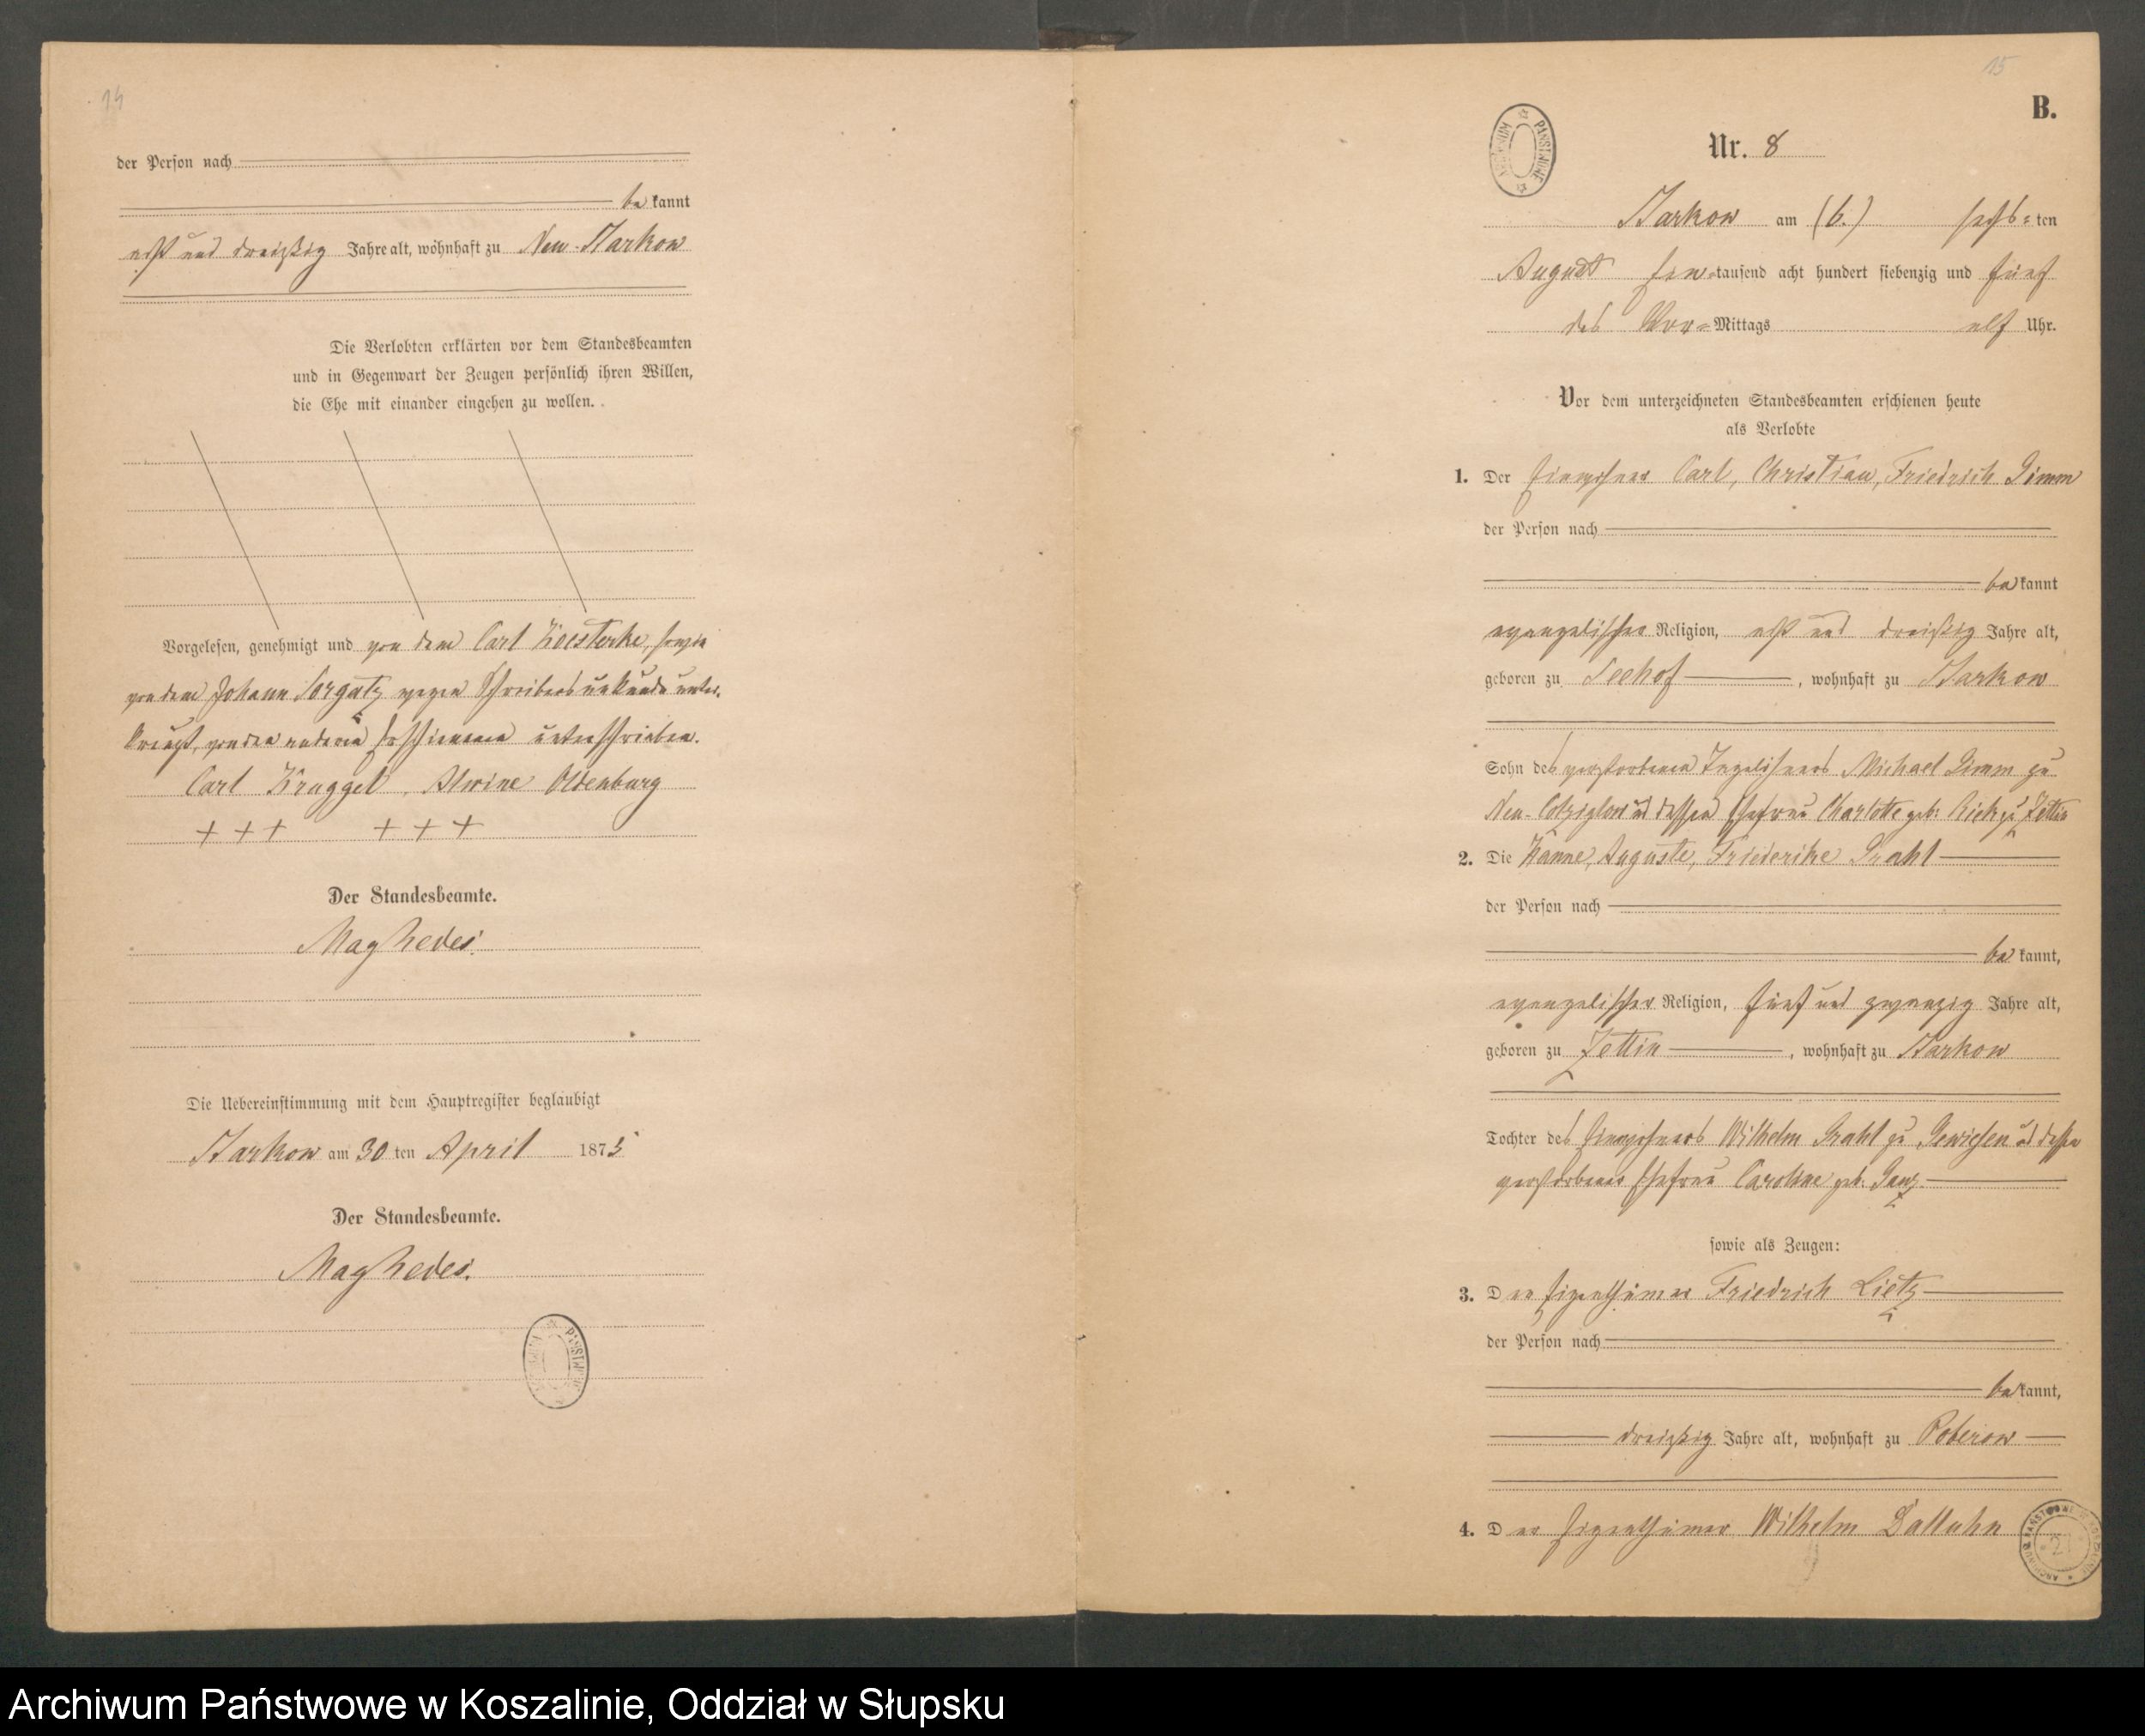 14
der Person nach
be kannt
acht und dreißig Jahre alt, wohnhaft zu Neu-Barkow
Die Verlobten erklärten vor dem Standesbeamten
und in Gegenwart der Zeugen persönlich ihren Willen,
die Ehe mit einander eingehen zu wollen.
Vorgelesen, genehmigt und von dem Carl, sowie
von dem Johann wegen Schreibensunkunde unter-
kreuzt, von den anderen Erschienenen unterschrieben.
Carl Kruggel. Alwine Oldenburg
+++ +++
Der Standesbeamte.
Die Uebereinstimmung mit dem Hauptregister beglaubigt
Barkow am 30 ten April 1875
Der Standesbeamte.
ARCHIWUM PAŃSTWOWE
15
B.
ARCHIWUM PAŃSTWOWE
Nr. 8
Barkow am (6.) sechs=ten
August ein-tausend acht hundert siebenzig und fünf
des Vor=Mittags elf Uhr.
Vor dem unterzeichneten Standesbeamten erschienen heute
als Verlobte
1. Der Einwohner Carl, Christian, Friedrich Dimm
der Person nach
be kannt
evangelischer Religion, acht und dreißig Jahre alt,
geboren zu Seehof, wohnhaft zu Barkow
Sohn des verstorbenen Michael Dimm zu
Neu- und dessen Ehefrau Charlotte geb. Rieck zu Zettin
2. Die Hanne, Auguste, Friederike Grahl
der Person nach
be kannt,
evangelischer Religion, fünf und zwanzig Jahre alt,
geboren zu Zettin, wohnhaft zu Barkow
Tochter des Einwohners Wilhelm Grahl zu Gewiesen und dessen
verstorbener Ehefrau Caroline geb. Ganz.
sowie als Zeugen:
3. Der Eigenthümer Friedrich Lietz
der Person nach
be kannt,
dreißig Jahre alt, wohnhaft zu Poberow
4. Der Eigenthümer Wilhelm Salluhn
Archiwum Państwowe w Koszalinie, Oddział w Słupsku